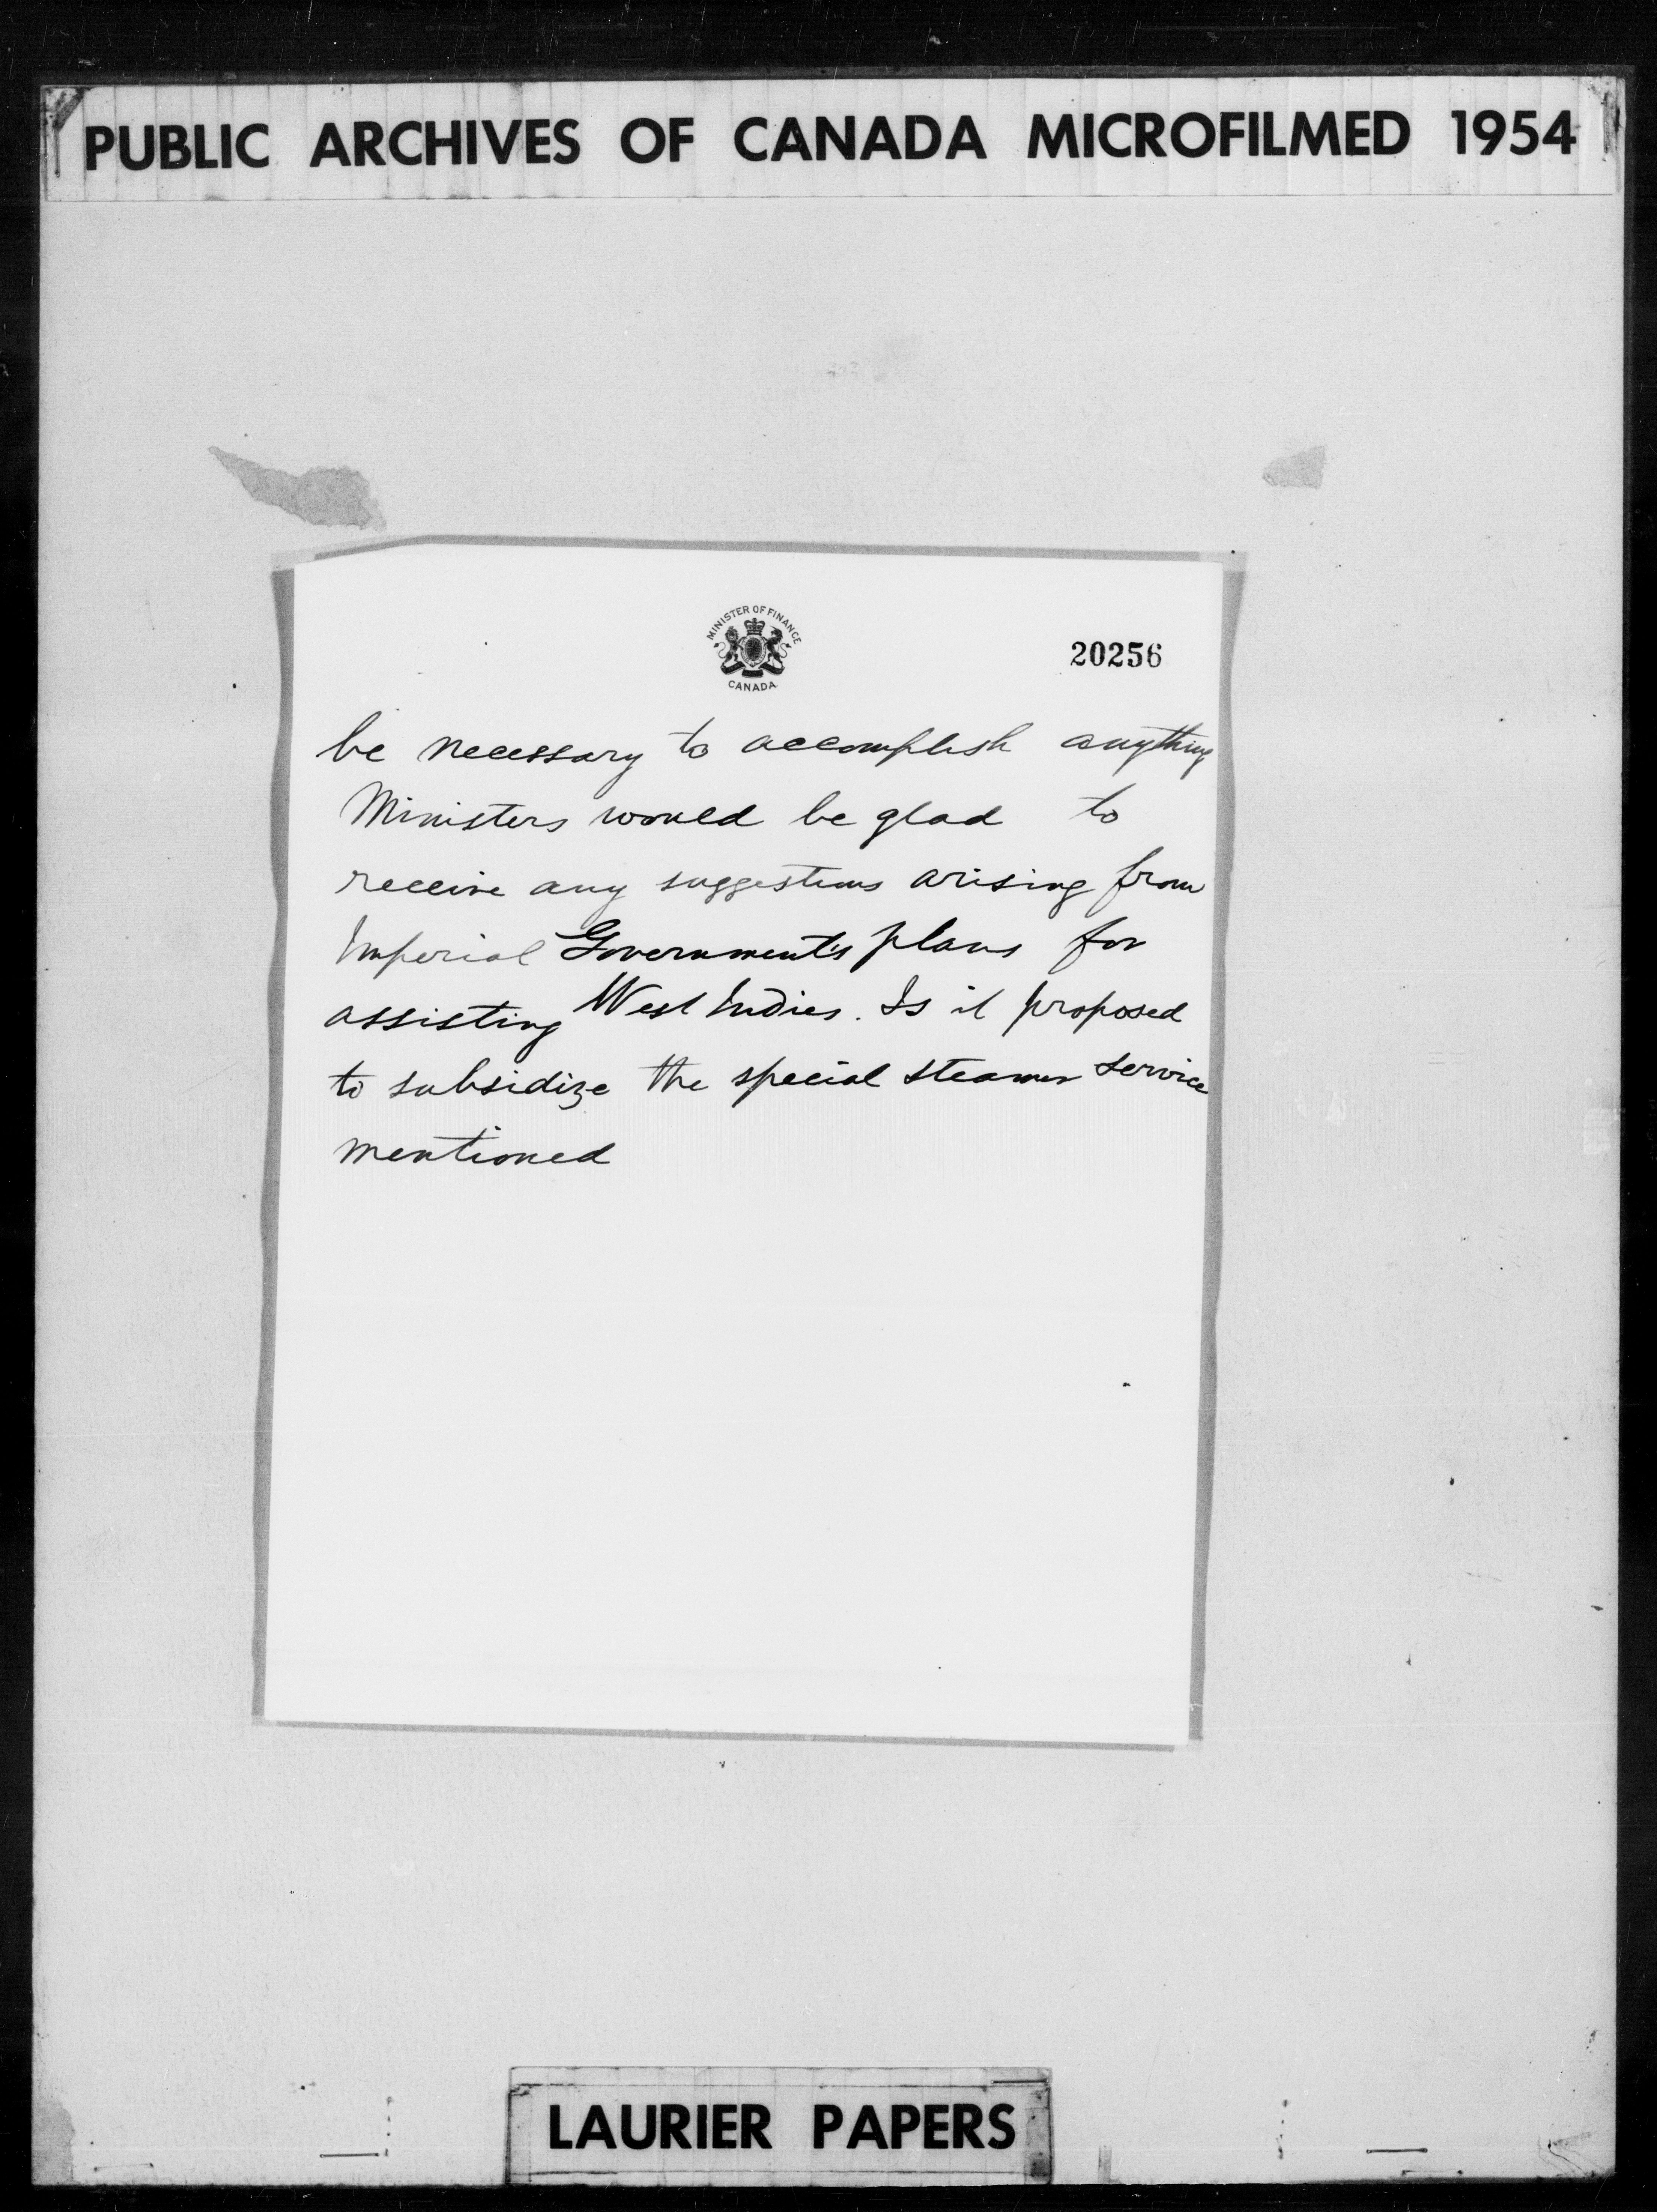 PUBLIC ARCHIVES OF CANADA MICROFILMED 1954
MINISTER OF FINANCE
CANADA
20256
be necessary to accomplish anything
Ministers would be glad to
receive any suggestions arising from
Imperial Government's plans for
assisting West Indies. Is it proposed
to subsidize the special steamer service
mentioned
LAURIER PAPERS